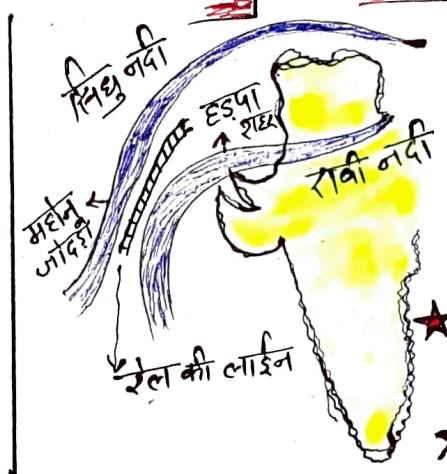 सिंधु नदी
हडपा
शहर
रावी नदी
महोन
जोदडो
रेल की लाईन